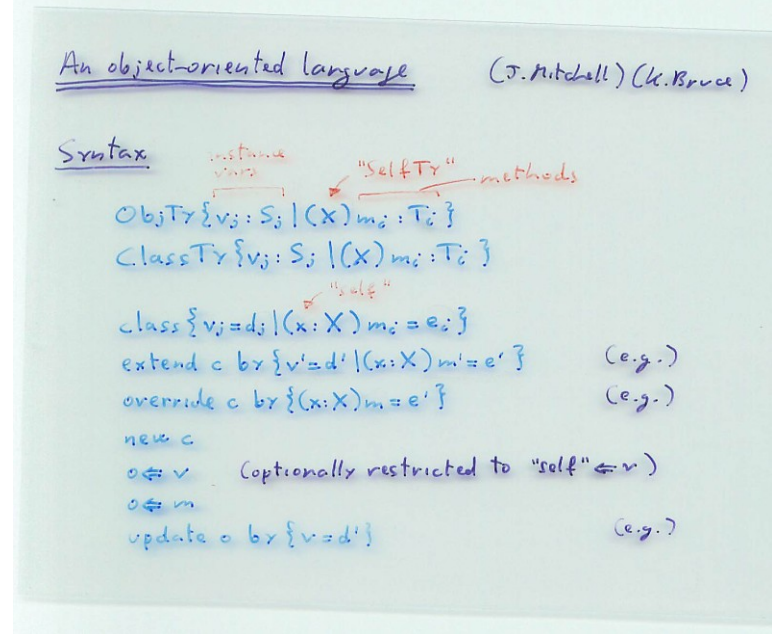 An object-oriented language (J. Mitchell) (K. Bruce)
Syntax
instance vars "SelfTy" methods
ObjTy {vⱼ : Sⱼ | (X) mᵢ : Tᵢ }
ClassTy {vⱼ : Sⱼ | (X) mᵢ : Tᵢ }
"self"
class {vⱼ = dⱼ | (x : X) mᵢ = eᵢ }
extend c by {v' = d' | (x : X) m' = e' } (e.g.)
override c by {(x : X) m = e' } (e.g.)
new c
o ⇐ v (optionally restricted to "self" ⇐ v)
o ⇐ m
update o by {v = d'} (e.g.)